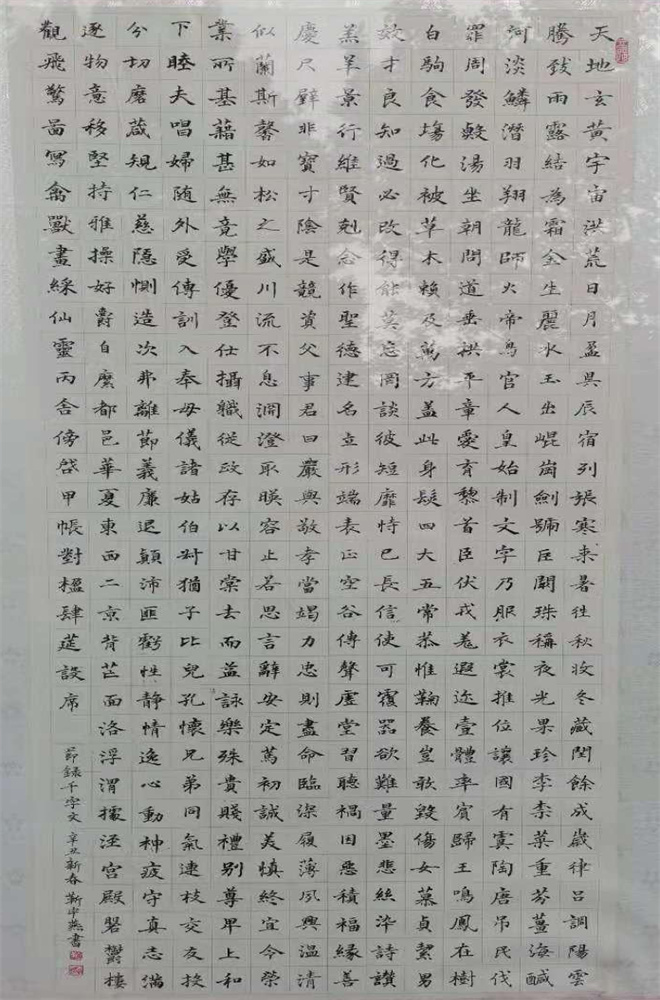 天地玄黃宇宙洪荒日月盈昃辰宿列張寒来暑往秋收冬藏閏餘成歲律呂調陽雲
騰致雨露結為霜金生麗水玉出崐崗劍號巨闕珠稱夜光果珍李柰菜重芥薑海醎
河淡鱗潛羽翔龍師火帝鳥官人皇始制文字乃服衣裳推位讓國有虞陶唐吊民伐
罪周發殷湯坐朝問道垂拱平章愛育黎首臣伏戎羌遐迩壹體率賓歸王鳴鳳在樹
白駒食場化被草木賴及萬方蓋此身髮四大五常恭惟鞠養豈敢毀傷女慕貞絜男
效才良知過必改得能莫忘罔談彼短靡恃已長信使可覆器欲難量墨悲絲染詩讚
羔羊景行維賢剋念作聖德建名立形端表正空谷傳聲虛堂習聽禍因惡積福緣善
慶尺璧非寶寸陰是競資父事君曰嚴與敬孝當竭力忠則盡命臨深履薄夙興溫清
似蘭斯馨如松之盛川流不息淵澄取暎容止若思言辭安定篤初誠美慎終宜令榮
業所基藉甚無竟學優登仕攝職從政存以甘棠去而益詠樂殊貴賤禮別尊卑上和
下睦夫唱婦随外受傳訓入奉母儀諸姑伯叔猶子比兒孔懷兄弟同氣連枝交友投
分切磨箴規仁慈隱惻造次弗離節義廉退顛沛匪虧性静情逸心動神疲守真志滿
逐物意移堅持雅操好爵自縻都邑華夏東西二京背芒面洛浮渭據涇宮殿磐鬱樓
觀飛驚啚寫禽獸畫綵仙靈丙舍傍啓甲帳對楹肆筵設席
節錄千字文 辛丑新春 靳燕書